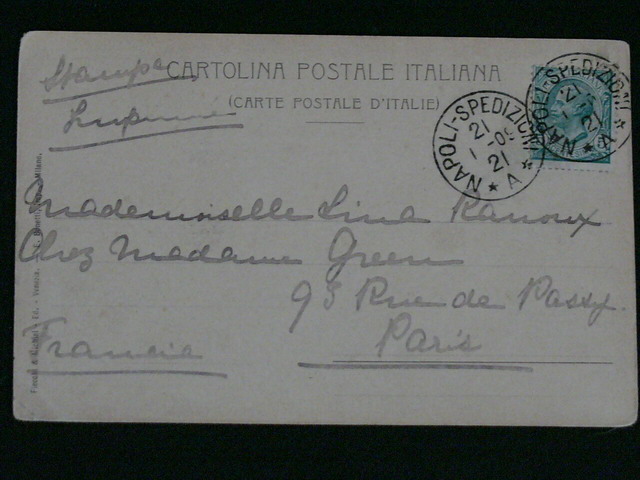 Stampe
CARTOLINA POSTALE ITALIANA
(CARTE POSTALE D'ITALIE)
NAPOLI-SPEDIZIONI
21
1-09
21
★ A ★
NAPOLI-SPEDIZIONI
21
21
★ A ★
Mademoiselle Lina Ranoux
Chez Madame Green
93 Rue de Passy.
Paris
Francia
Ed. - Venezia.
Milano.